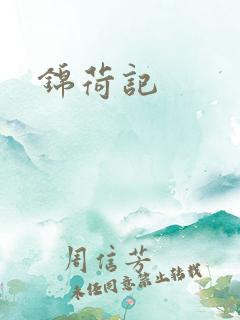 錦荷記
周信芳
未经同意禁止转载